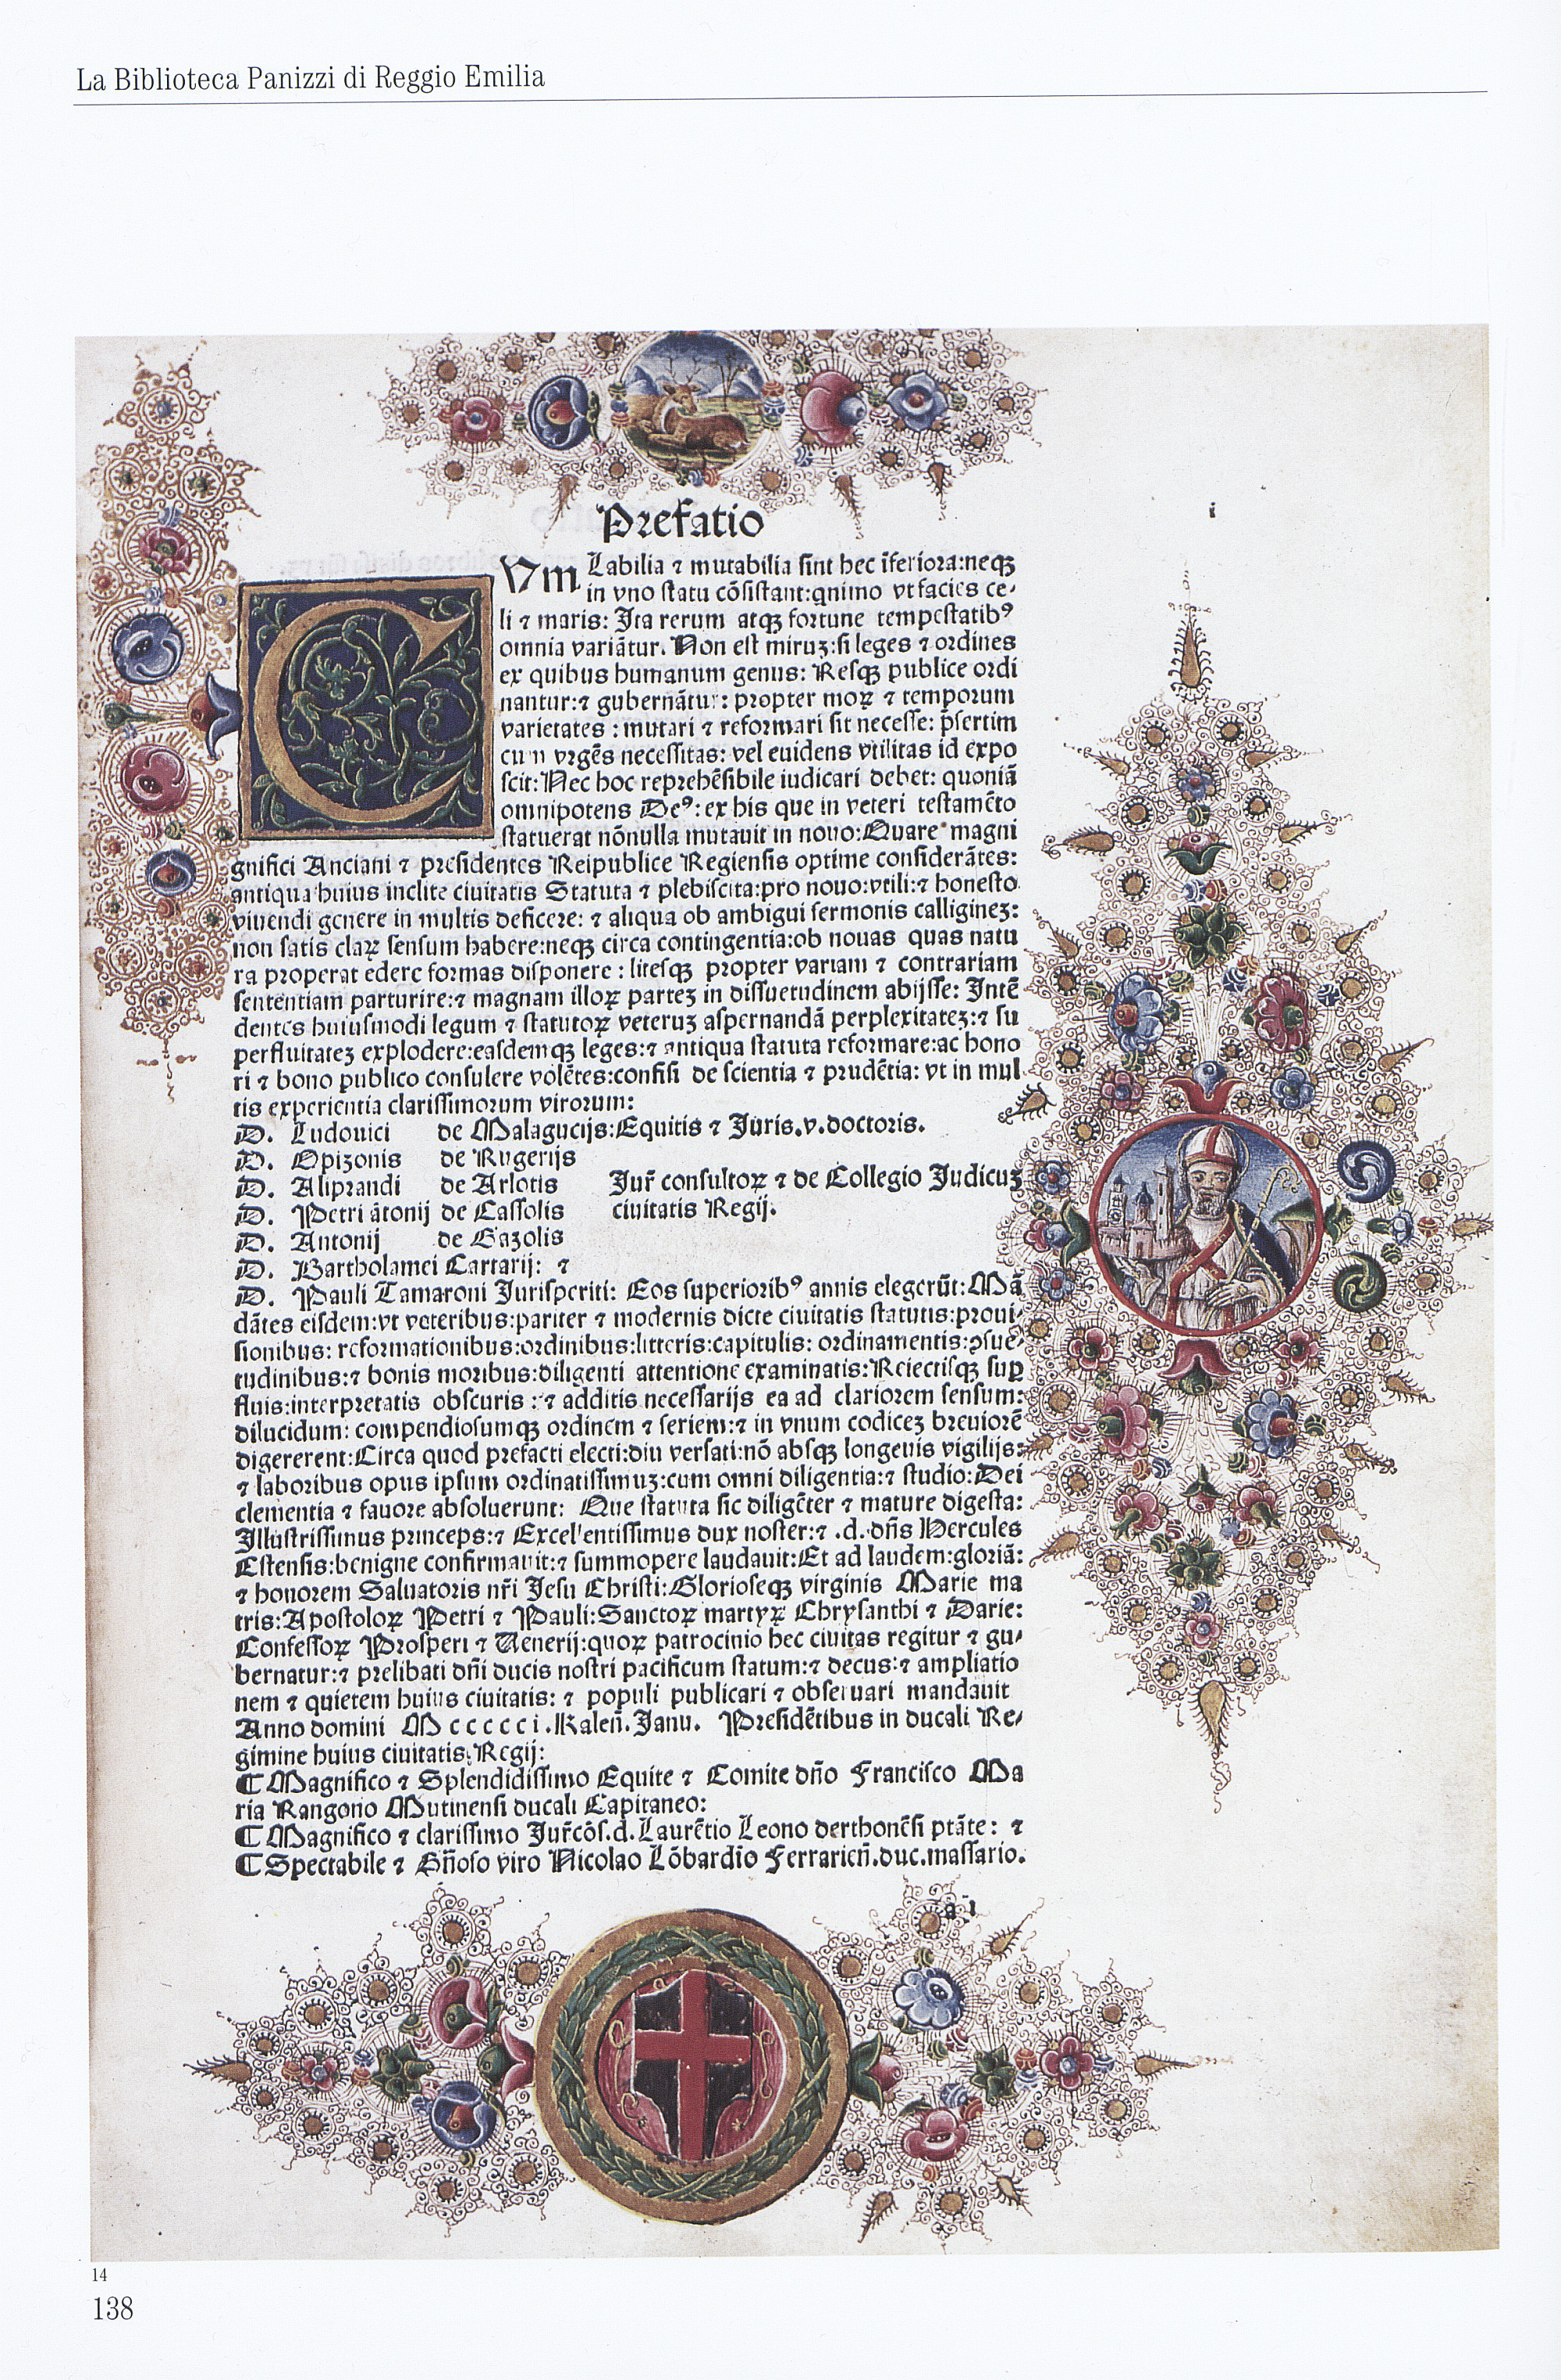 La Biblioteca Panizzi di Reggio Emilia
Prefatio
i
CVm Labilia ⁊ mutabilia sint hec īferiora:neqꝫ
in vno statu cōsistant:qnimo vt facies ce-
li ⁊ maris: Ita rerum atqꝫ fortune tempestatibꝰ
omnia variātur. Non est miruꝫ:si leges ⁊ ordines
ex quibus humanum genus: Resqꝫ publice ordi
nantur:⁊ gubernātur: propter moꝝ ⁊ temporum
varietates : mutari ⁊ reformari sit necesse: p̄sertim
cum vrgēs necessitas: vel euidens vtilitas id expo
scit: Nec hoc reprehēsibile iudicari debet: quoniā
omnipotens Deꝰ: ex his que in veteri testamēto
statuerat nōnulla mutauit in nouo: Quare magni
gnifici Anciani ⁊ presidentes Reipublice Regiensis optime considerātes:
antiqua huius inclite ciuitatis Statuta ⁊ plebiscita:pro nouo:vtili:⁊ honesto
viuendi genere in multis deficere: ⁊ aliqua ob ambigui sermonis calligineꝫ:
non satis claꝝ sensum habere:neqꝫ circa contingentia:ob nouas quas natu
ra properat edere formas disponere : litesqꝫ propter variam ⁊ contrariam
sententiam parturire:⁊ magnam illoꝝ parteꝫ in dissuetudinem abijsse: Intē
dentes huiusmodi legum ⁊ statutoꝝ veteruꝫ aspernandā perplexitateꝫ:⁊ su
perfluitateꝫ explodere:easdemqꝫ leges:⁊ antiqua statuta reformare:ac hono
ri ⁊ bono publico consulere volētes:confisi de scientia ⁊ prudētia: vt in mul
tis experientia clarissimorum virorum:
D. Ludouici de Malagucijs:Equitis ⁊ Juris.v.doctoris.
D. Opizonis de Rugerijs
D. Aliprandi de Arlotis Jur̄ consultoꝝ ⁊ de Collegio Judicuꝫ
D. Petri ātonij de Cassolis ciuitatis Regij.
D. Antonij de Gazolis
D. Bartholamei Cartarij: ⁊
D. Pauli Tamaroni Jurisperiti: Eos superioribꝰ annis elegerūt: Mā
dātes eisdem:vt veteribus:pariter ⁊ modernis dicte ciuitatis statutis:proui-
sionibus: reformationibus:ordinibus:litteris:capitulis: ordinamentis:ꝯsue-
tudinibus:⁊ bonis moribus:diligenti attentione examinatis:Reiectisqꝫ suꝑ
fluis:interpretatis obscuris :⁊ additis necessarijs ea ad clariorem sensum:
dilucidum: compendiosumqꝫ ordinem ⁊ seriem:⁊ in vnum codiceꝫ breuiorē
digererent:Circa quod prefacti electi:diu versati:nō absqꝫ longeuis vigilijs:
⁊ laboribus opus ipsum ordinatissimuꝫ:cum omni diligentia:⁊ studio: Dei
clementia ⁊ fauore absoluerunt: Que statuta sic diligēter ⁊ mature digesta:
Illustrissimus princeps:⁊ Excellentissimus dux noster:⁊ .d.dn̄s Hercules
Estensis:benigne confirmauit:⁊ summopere laudauit:Et ad laudem:gloriā:
⁊ honorem Saluatoris nr̄i Jesu Christi:Glorioseqꝫ virginis Marie ma
tris:Apostoloꝝ Petri ⁊ Pauli:Sanctoꝝ martyꝝ Chrysanthi ⁊ Darie:
Confessoꝝ Prosperi ⁊ Venerij:quoꝝ patrocinio hec ciuitas regitur ⁊ gu-
bernatur:⁊ prelibati dn̄i ducis nostri pacificum statum:⁊ decus:⁊ ampliatio
nem ⁊ quietem huius ciuitatis: ⁊ populi publicari ⁊ obseruari mandauit
Anno domini M c c c c c i .Kalen̄. Janu. Presidētibus in ducali Re-
gimine huius ciuitatis Regij:
¶ Magnifico ⁊ Splendidissimo Equite ⁊ Comite dn̄o Francisco Ma
ria Rangono Mutinensi ducali Capitaneo:
¶ Magnifico ⁊ clarissimo Jur̄cōs.d.Laurētio Leono derthonēsi ptāte: ⁊
¶ Spectabile ⁊ Gn̄oso viro Nicolao Lōbardīo Ferrarien̄.duc.massario.
a i
14
138